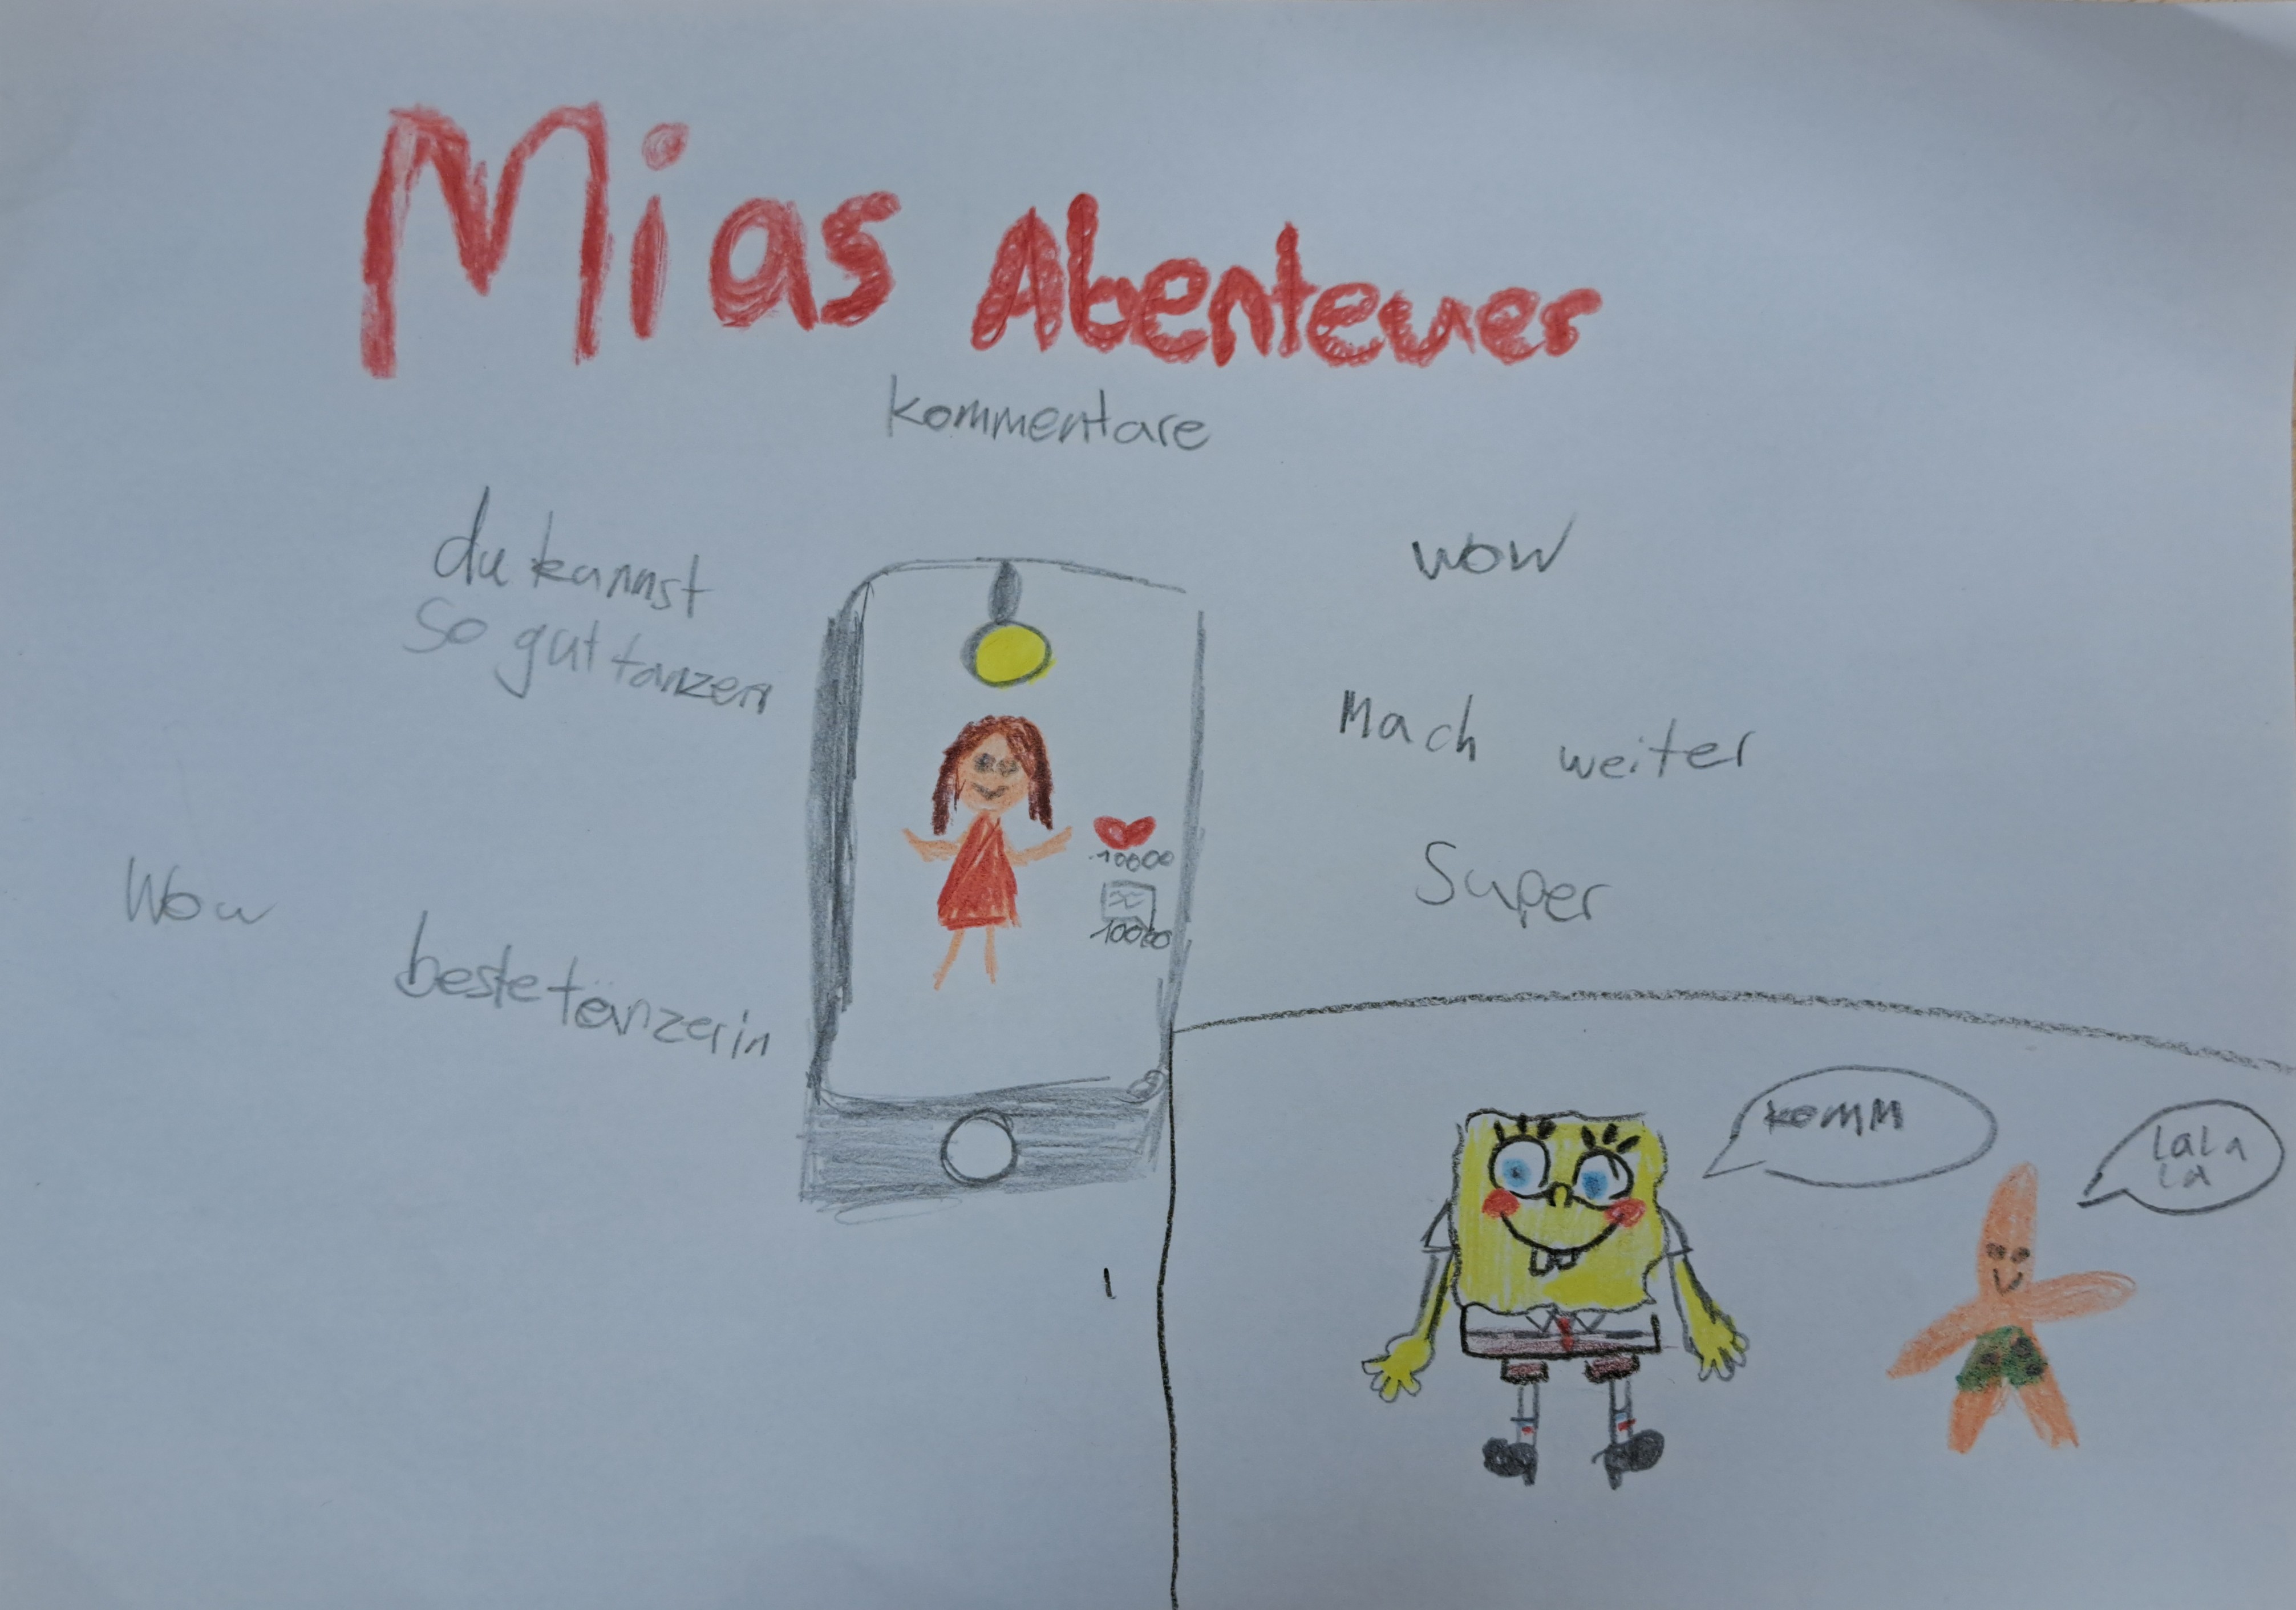 Mias Abenteuer
kommentare
du kannst
so gut tanzen
wow
Mach weiter
Super
Wow
beste tänzerin
10000
10000
komm
lala
la